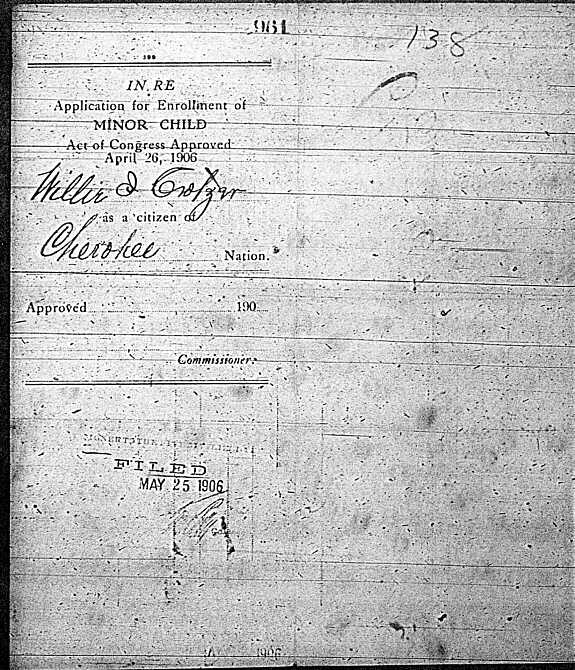 961
138
IN RE
Application for Enrollment of
MINOR CHILD
Act of Congress Approved
April 26, 1906
Willie I Crotzer
as a citizen of
Cherokee Nation.
Approved 190
Commissioner.
FILED
MAY 25 1906
1906